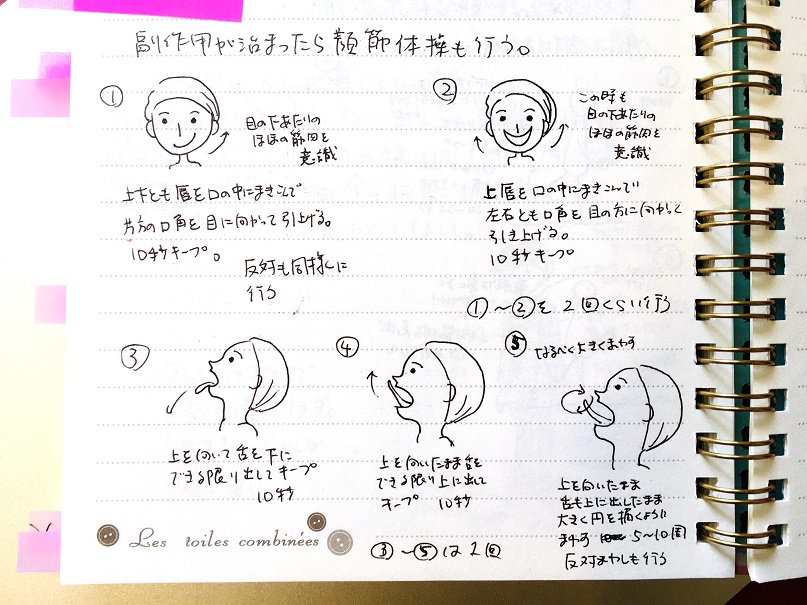 副作用が治まったら顔筋体操も行う。
①
目の下あたりの
ほほの筋肉を
意識
上下とも唇を口の中にまきこんで
片方の口角を目に向かって引上げる。
10秒キープ。
反対も同様に
行う
②
この時も
目の下あたりの
ほほの筋肉を
意識
上唇を口の中にまきこんで
左右とも口角を目の方に向かって
引き上げる。
10秒キープ
①～②を2回くらい行う
③
上を向いて舌を下に
できる限り出してキープ
10秒
④
上を向いたまま舌を
できる限り上に出して
キープ 10秒
⑤ なるべく大きくまわす
上を向いたまま
舌も上に出したまま
大きく円を描くように
まわす 5～10回
反対まわしも行う
③～⑤は2回
Les toiles combinées